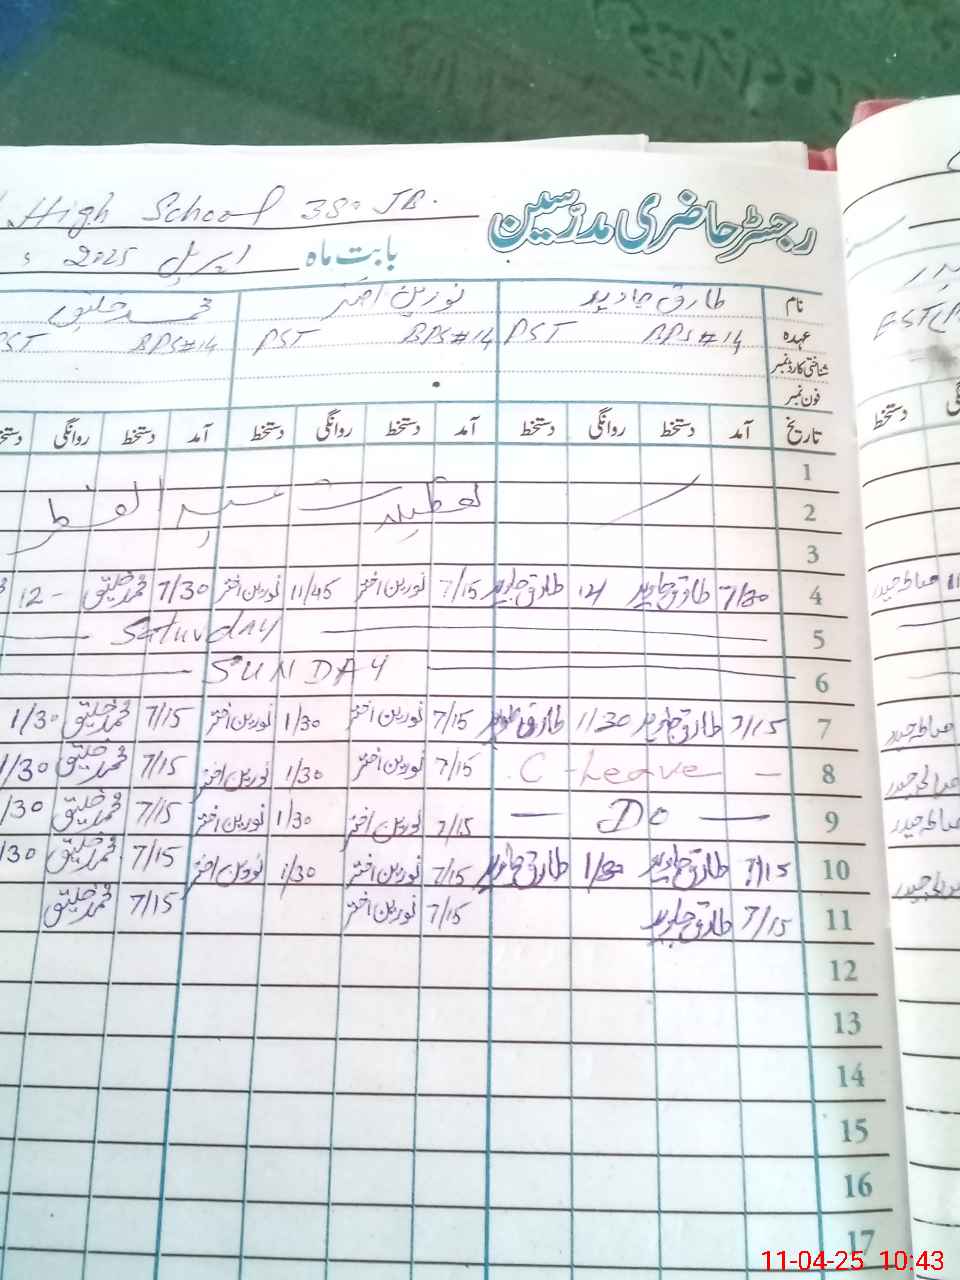 High School 38 JB.
رجسٹر حاضری مدرسین
بابت ماہ اپریل 2025
نام طارق جاوید نورین اختر محمد خلیق
عہدہ PST BPS#14 PST BPS#14 PST BPS#14
شناختی کارڈ نمبر
فون نمبر
تاریخ آمد دستخط روانگی دستخط آمد دستخط روانگی دستخط آمد دستخط روانگی دستخط
1
2 تعطیلات عید الفطر
3
4 7/30 طارق جاوید 12 طارق جاوید 7/15 نورین اختر 11/45 نورین اختر 7/30 محمد خلیق 12-
5 Saturday
6 SUNDAY
7 7/15 طارق جاوید 11/30 طارق جاوید 7/15 نورین اختر 1/30 نورین اختر 7/15 محمد خلیق 1/30
8 C-Leave 7/15 نورین اختر 1/30 نورین اختر 7/15 محمد خلیق 1/30
9 Do 7/15 نورین اختر 1/30 نورین اختر 7/15 محمد خلیق /30
10 7/15 طارق جاوید 1/30 طارق جاوید 7/15 نورین اختر 1/30 نورین اختر 7/15 محمد خلیق /30
11 7/15 طارق جاوید 7/15 نورین اختر 7/15 محمد خلیق
12
13
14
15
16
17
دستخط
11-04-25 10:43